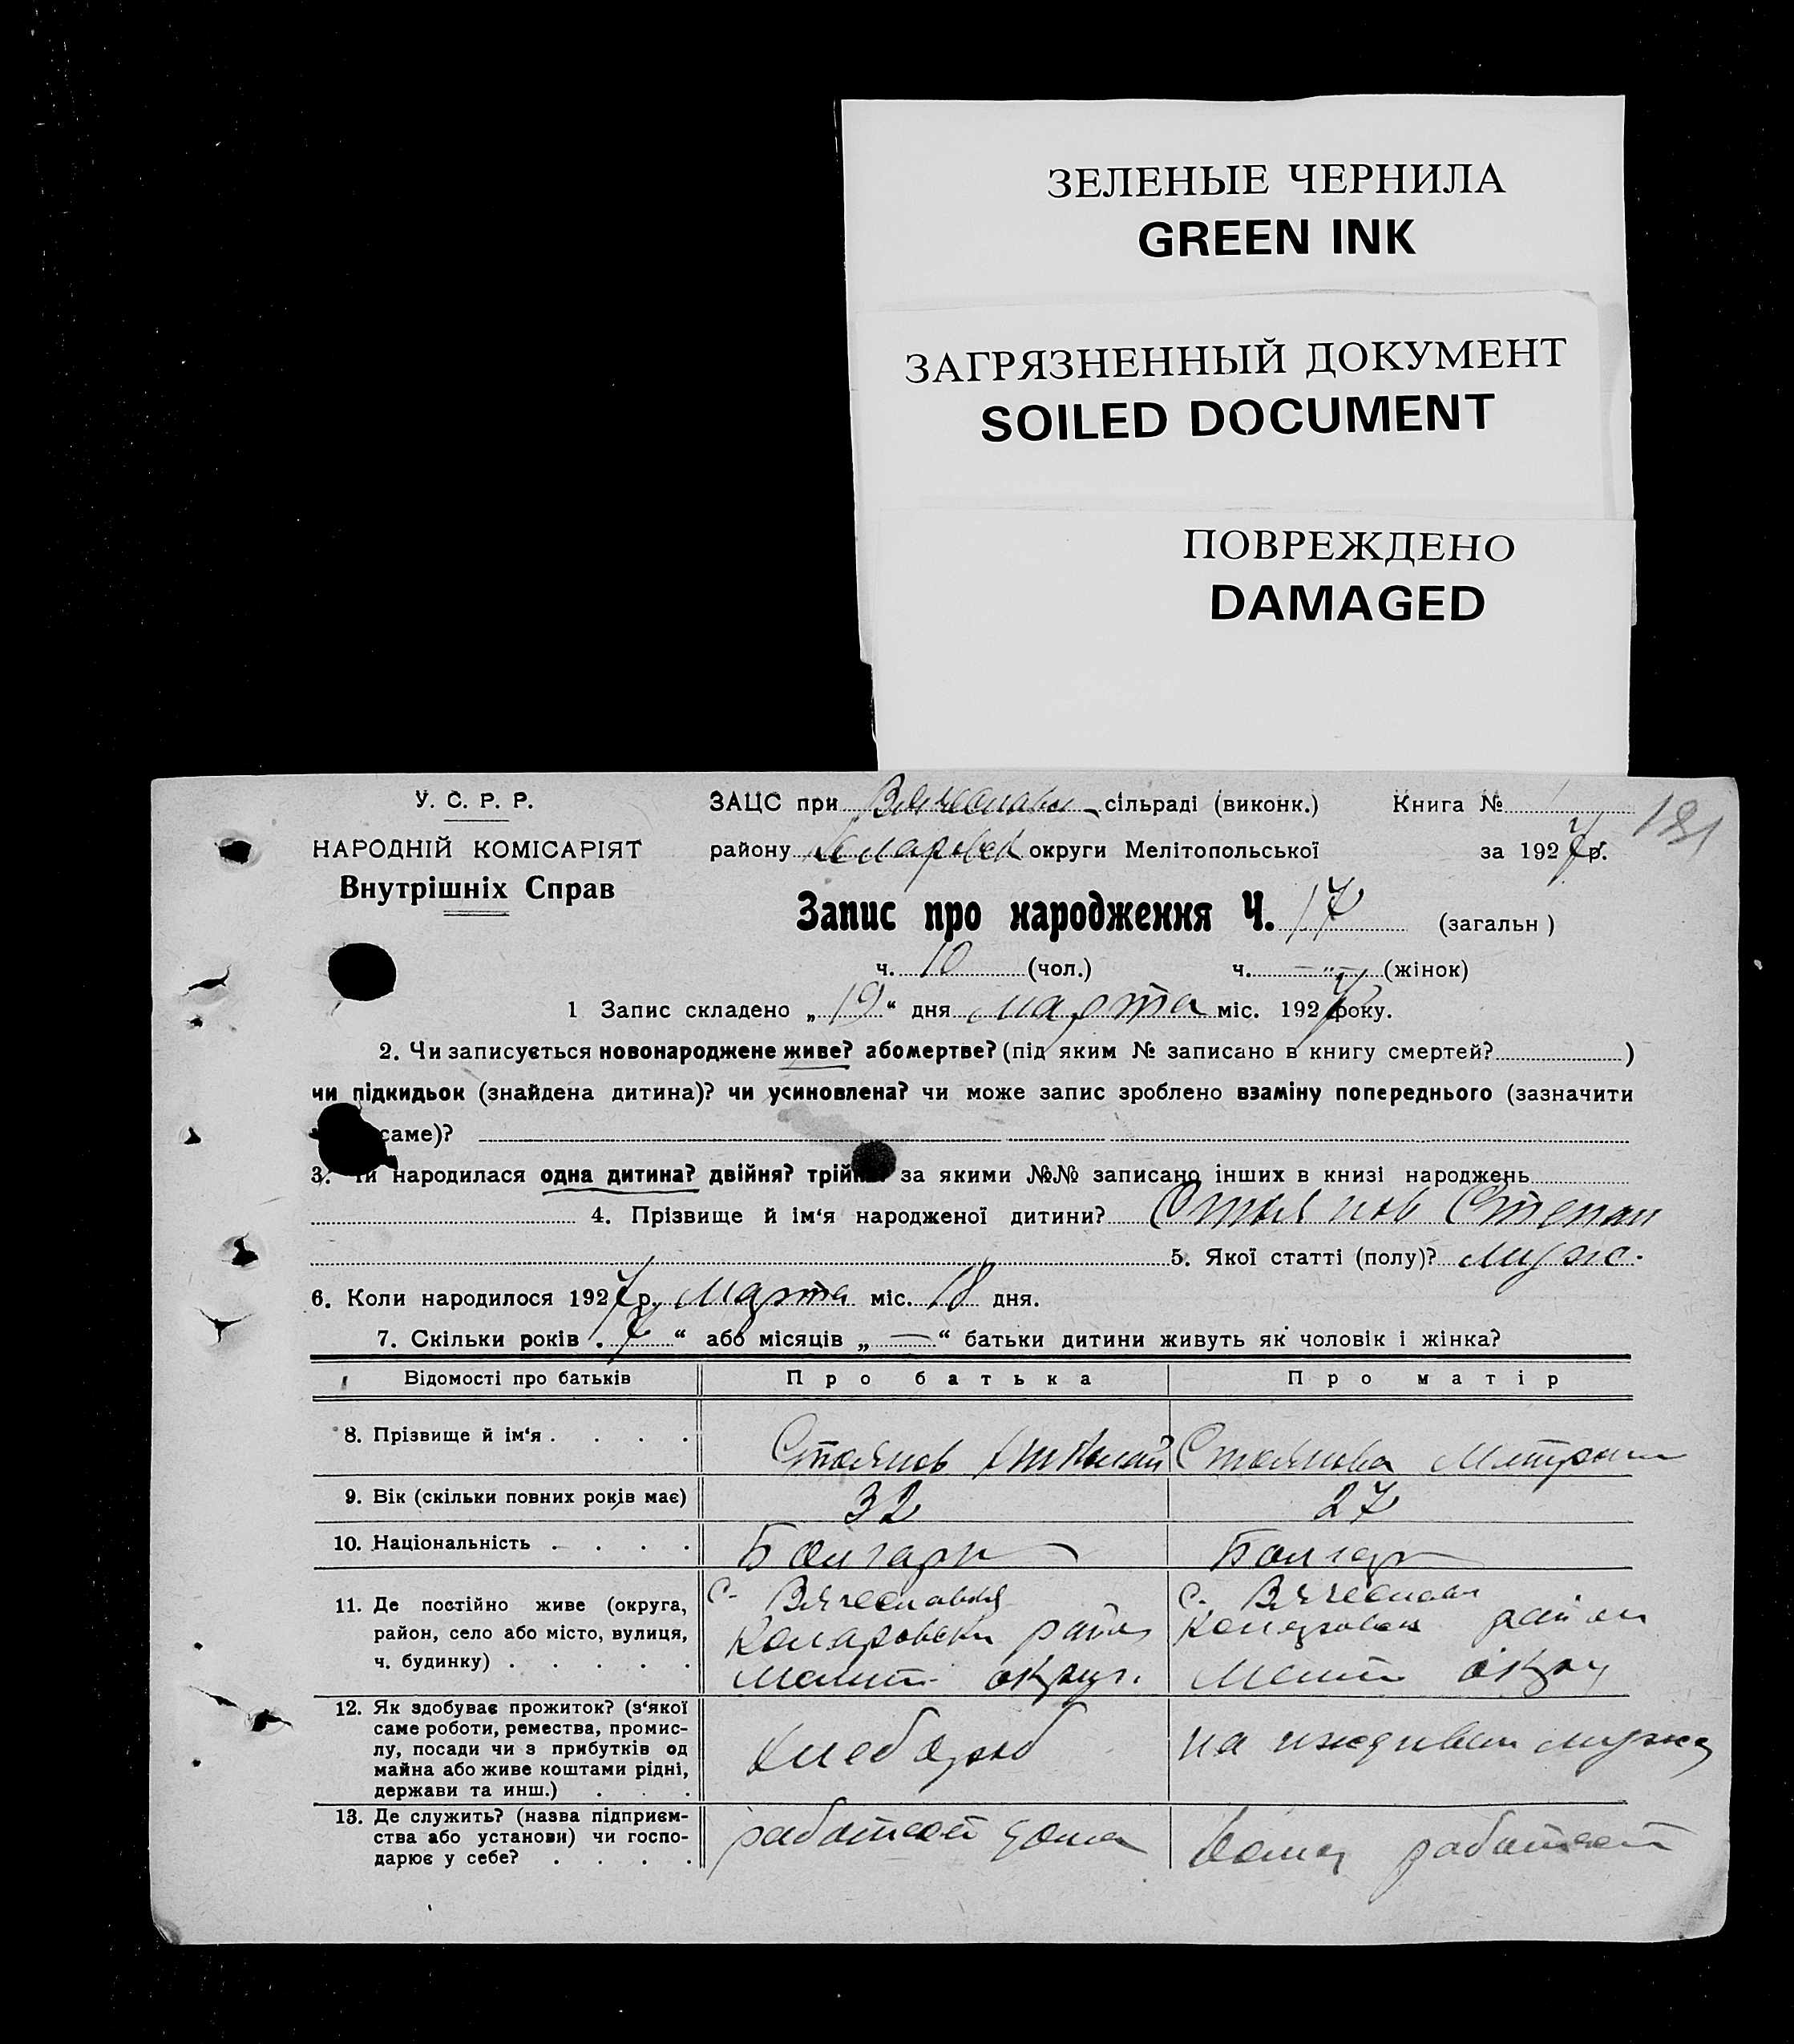 ЗЕЛЕНЫЕ ЧЕРНИЛА
GREEN INK
ЗАГРЯЗНЕННЫЙ ДОКУМЕНТ
SOILED DOCUMENT
ПОВРЕЖДЕНО
DAMAGED
У. С. Р. Р.
НАРОДНІЙ КОМІСАРІЯТ
Внутрішніх Справ
ЗАЦС при сільраді (виконк.) Книга №
району округи Мелітопольської за 1927 р.
Запис про народження Ч. 17 (загальн)
ч. 10 (чол.) ч. —„— (жінок)
1 Запис складено „19“ дня марта міс. 1927 року.
2. Чи записується новонароджене живе? або мертве? (під яким № записано в книгу смертей? )
чи підкидьок (знайдена дитина)? чи усиновлена? чи може запис зроблено взаміну попереднього (зазначити
саме)?
3. Чи народилася одна дитина? двійня? трій за якими №№ записано інших в книзі народжень
4. Прізвище й ім‘я народженої дитини? Стоянов Степан
5. Якої статті (полу)? муж.
6. Коли народилося 1927 р. Марта міс. 18 дня.
7. Скільки років „7“ або місяців „—“ батьки дитини живуть як чоловік і жінка?
Відомості про батьків Про батька Про матір
8. Прізвище й ім‘я . . . . Стоянов Стоянова
9. Вік (скільки повних років має) 32 27
10. Національність . . . . Болгарин Болгар
11. Де постійно живе (округа,
район, село або місто, вулиця,
ч. будинку) . . . . .
с. Вячеславка
Коларовски район
Мелит. округ.
с. Вячеславк
район
Мелит округ
12. Як здобуває прожиток? (з‘якої
саме роботи, ремества, промис-
лу, посади чи з прибутків од
майна або живе коштами рідні,
держави та инш.) . . .
хлебороб
на иждивен мужа
13. Де служить? (назва підприєм-
ства або установи) чи госпо-
дарює у себе? . . . .
работает дома
дома работает